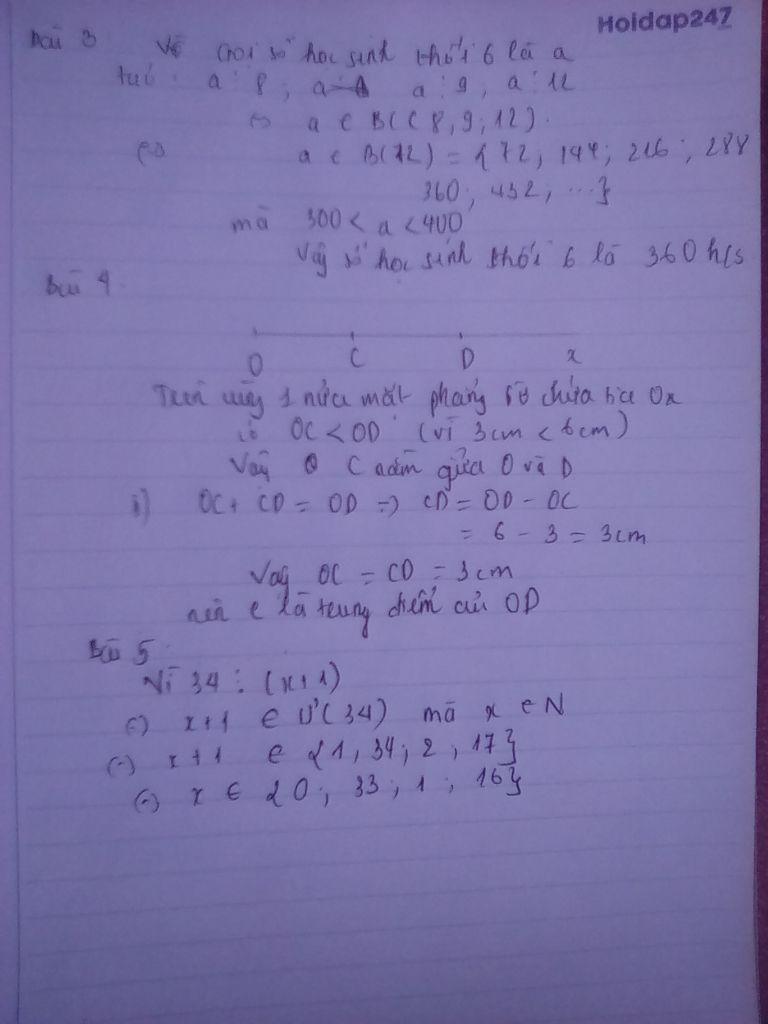 Hoidap247
Bài 3 Vì Gọi số học sinh khối 6 là a
a ⋮ 8 ; a ⋮ 9 , a ⋮ 12
⇔ a ∈ BC(8, 9, 12).
⇔ a ∈ B(72) = {72 ; 144 ; 216 ; 288
360 ; 432 ; ...}
mà 300 < a < 400
Vậy số học sinh khối 6 là 360 h/s
Bài 4
O C D x
Trên cùng 1 nửa mặt phẳng bờ chứa tia Ox
có OC < OD (vì 3cm < 6cm)
Vậy C nằm giữa O và D
OC + CD = OD => CD = OD - OC
= 6 - 3 = 3cm
Vậy OC = CD = 3cm
nên C là trung điểm của OD
Bài 5
Vì 34 ⋮ (x+1)
(=) x+1 ∈ Ư(34) mà x ∈ N
(=) x+1 ∈ {1, 34 ; 2 ; 17}
(=) x ∈ {0 ; 33 ; 1 ; 16}